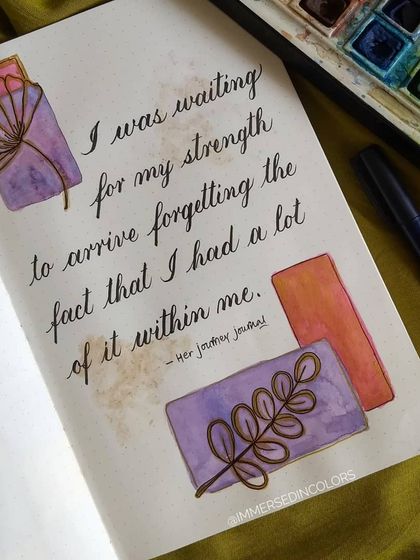 I was waiting
for my strength
to arrive forgetting the
fact that I had a lot
of it within me.
– Her journey journal
@IMMERSEDINCOLORS